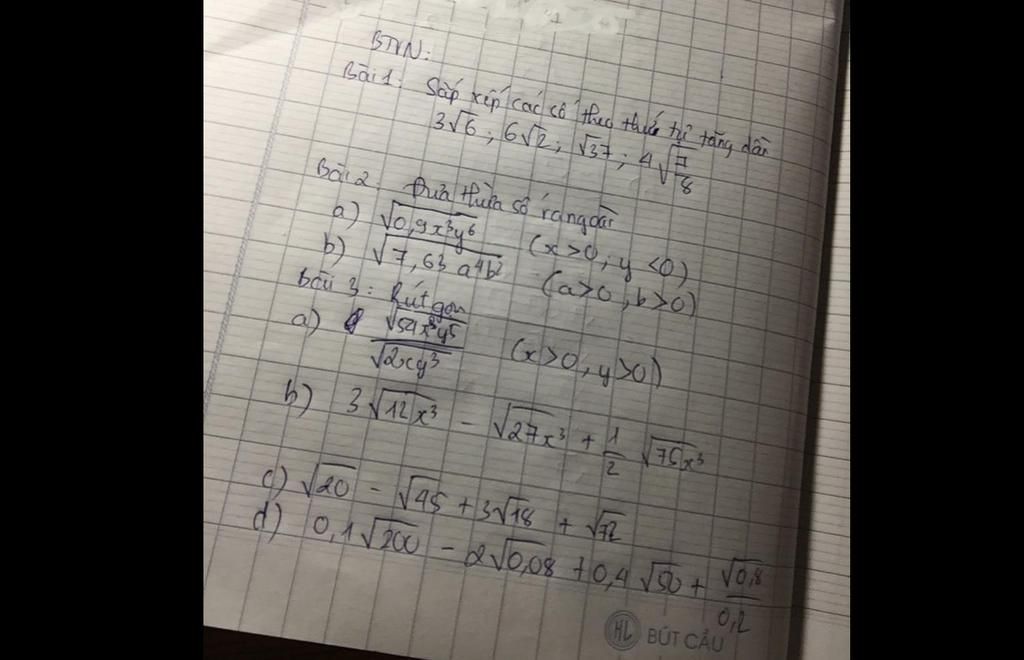 BTVN:
Bài 1: Sắp xếp các số theo thứ tự tăng dần
3√6; 6√2; √37; 4√(7/8)
Bài 2: Đưa thừa số ra ngoài
a) √(0,9x³y⁶) (x>0, y<0)
b) √(7,63 a⁴b²) (a>0, b>0)
Bài 3: Rút gọn
a) √(54x³y⁵)/√(2xy³) (x>0, y>0)
b) 3√(12x³) - √(27x³) + 1/2 √(75x³)
c) √20 - √45 + 3√18 + √72
d) 0,1√200 - 2√0,08 + 0,4√50 + √0,8/0,2
HL BÚT CẬU